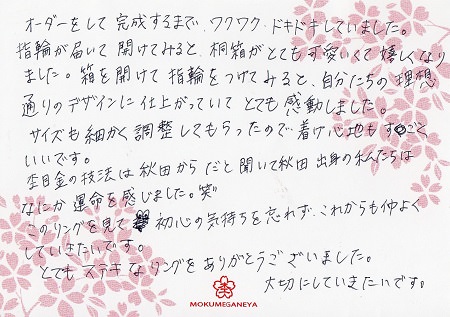 オーダーをして完成するまで、ワクワクドキドキしていました。
指輪が届いて開けてみると、桐箱がとても可愛いくて嬉しくなり
ました。箱を開けて指輪をつけてみると、自分たちの理想
通りのデザインに仕上がっていてとても感動しました。
サイズも細かく調整してもらったので着け心地もすごく
いいです。
杢目金の技法は秋田からだと聞いて秋田出身の私たちは
なにか運命を感じました。笑
このリングを見て初心の気持ちを忘れず、これからも仲よく
していきたいです。
とてもステキなリングをありがとうございました。
大切にしていきたいです。
MOKUMEGANEYA